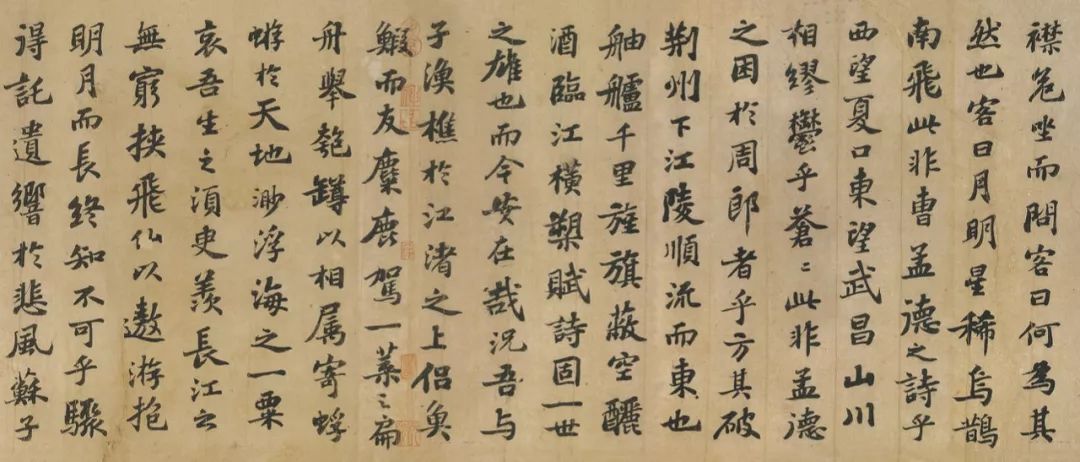 襟危坐而問客曰何為其
然也客曰月明星稀烏鵲
南飛此非曹孟德之詩乎
西望夏口東望武昌山川
相繆鬱乎蒼〻此非孟德
之困於周郎者乎方其破
荊州下江陵順流而東也
舳艫千里旌旗蔽空釃
酒臨江橫槊賦詩固一世
之雄也而今安在哉況吾与
子漁樵於江渚之上侶魚
鰕而友麋鹿駕一葉之扁
舟舉匏罇以相属寄蜉
蝣於天地渺浮海之一粟
哀吾生之須臾羨長江之
無窮挾飛仙以遨游抱
明月而長終知不可乎驟
得託遺響於悲風蘇子